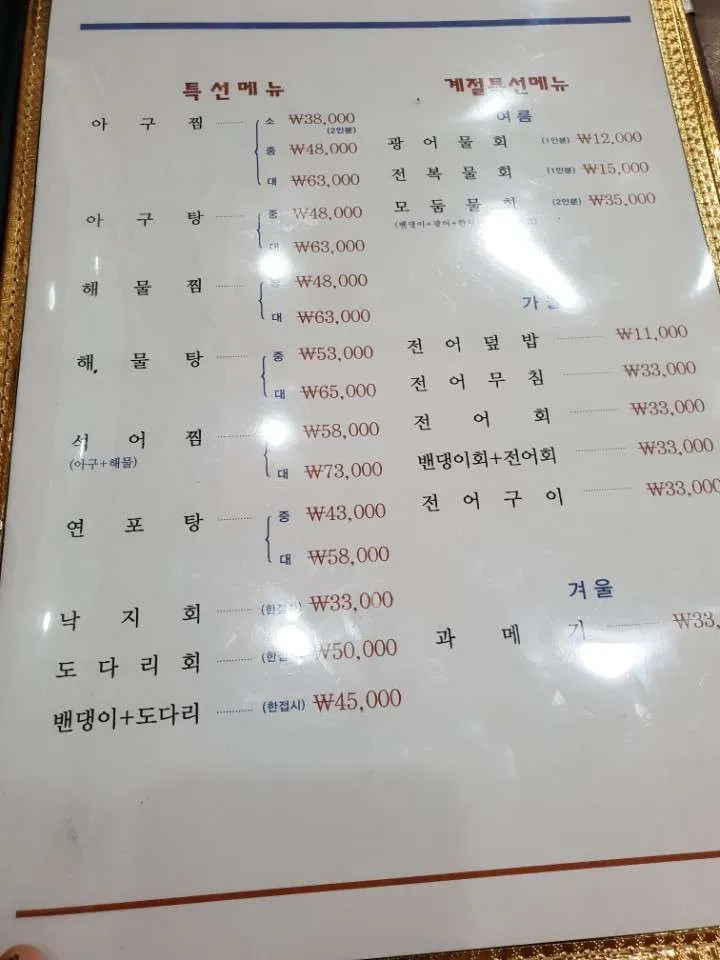 특선메뉴
아구찜 소 ₩38,000
(2인분)
중 ₩48,000
대 ₩63,000
아구탕 중 ₩48,000
대 ₩63,000
해물찜 중 ₩48,000
대 ₩63,000
해물탕 중 ₩53,000
대 ₩65,000
석어찜 ₩58,000
(아구+해물)
대 ₩73,000
연포탕 중 ₩43,000
대 ₩58,000
낙지회 (한접시) ₩33,000
도다리회 ₩50,000
밴댕이+도다리 (한접시) ₩45,000
계절특선메뉴
여름
광어물회 (1인분) ₩12,000
전복물회 (1인분) ₩15,000
모둠물회 (2인분) ₩35,000
가을
전어덮밥 ₩11,000
전어무침 ₩33,000
전어회 ₩33,000
밴댕이회+전어회 ₩33,000
전어구이 ₩33,000
겨울
과메기 ₩33,